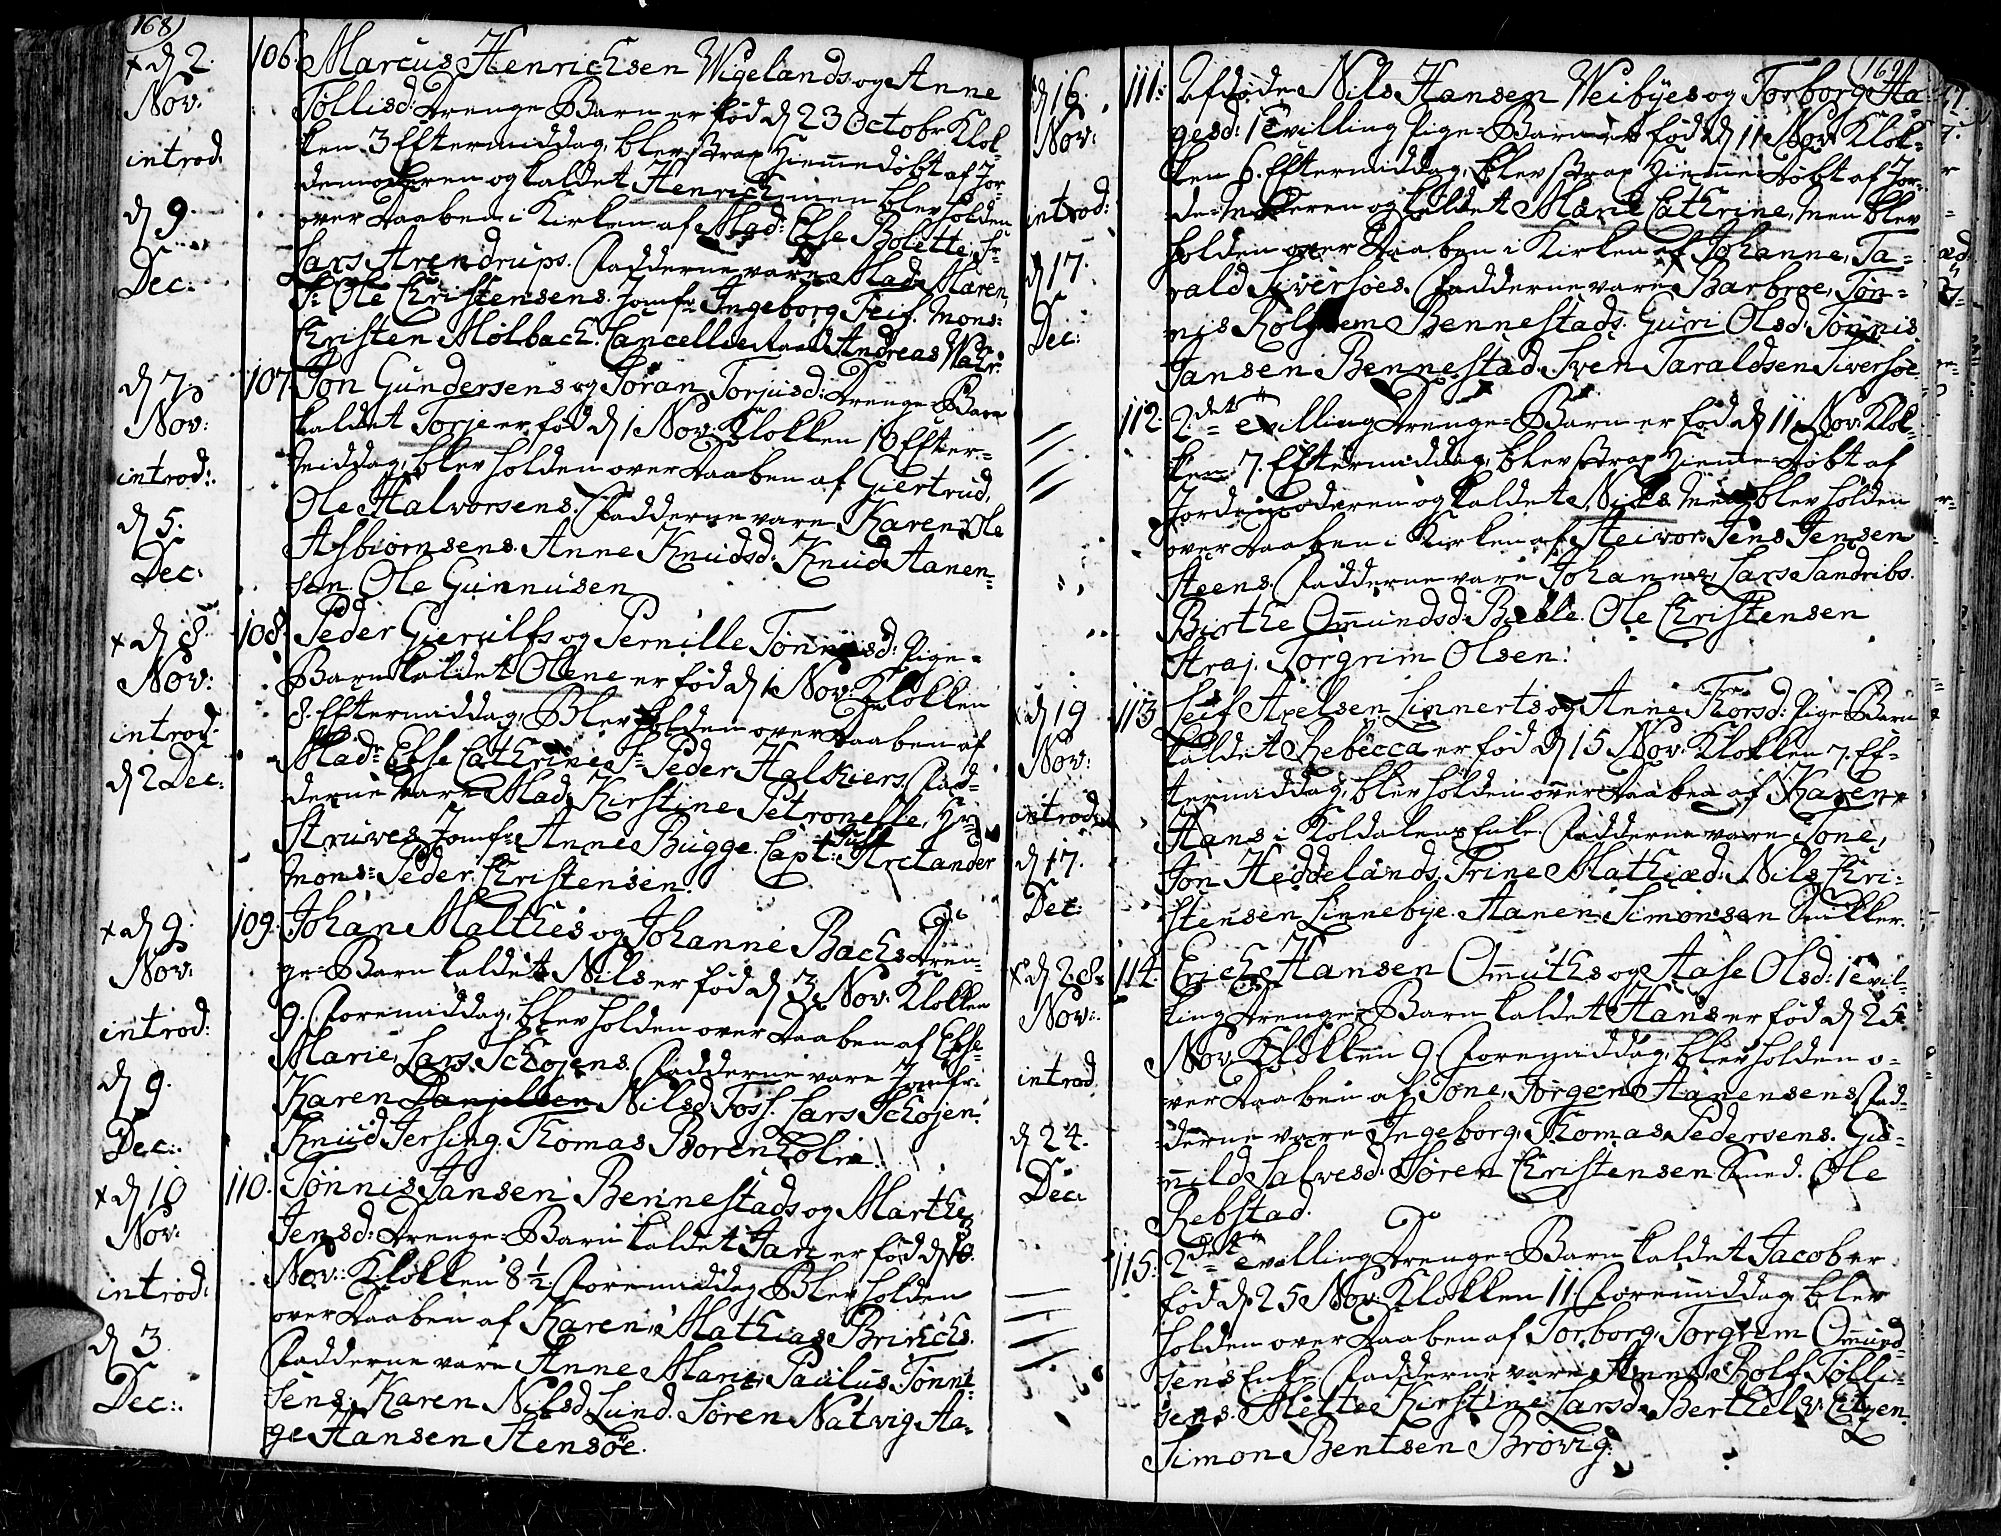 168)
x d 2. Nov: introd: d 9. Dec:
106. Marcus Henrichsen Wigelands og Anne
Tøllisd: Drenge-Barn er fød d 23 Octobr Klok-
ken 3 Eftermiddag, blev strax Hiemmedøbt af Jor-
demoderen og kaldet Henrich, men blev holden
over Daaben i Kirken af Mad: Else Bolette, Sr
Lars Arendrups. Fadderne vare Mad: Maren,
Sr Ole Christensens. Jomfr: Ingeborg Feif. Mons:
Christen Mølbach. Cancellieraad Andreas
d 7 Nov: introd: d 5. Dec:
107. Jon Gundersens og Søran Torjusd: Drenge-Barn
kaldet Torje er fød d 1 Nov: Klokken 10 Efter-
middag, blev holden over Daaben af Giertrud,
Ole Halvorsens. Fadderne vare Karen Ole
Asbiørnsens. Anne Knudsd: Knud Aanen-
sen. Ole Gunnusen
x d 8. Nov: introd: d 2 Dec:
108. Peder Gierulfs og Pernille Tønnisd: Pige-
Barn kaldet Olene er fød d 1 Nov: Klokken
8. Eftermiddag, Blev holden over Daaben af
Madr: Else Cathrine Sr Peder Halkiers. Fad-
derne vare Mad: Kirstine Petronelle, Hr:
Struves. Jomfr: Anne Bugge. Capt: Just Arctander
Mons: Peder Christensen.
x d 9. Nov: introd: d 9. Dec:
109. Johan Malthes og Johanne Bachs Dren-
ge-Barn kaldet Nils er fød d 3 Nov: Klokken
9. Foremiddag, blev holden over Daaben af Else
Marie, Lars Schøjens. Fadderne vare Jomfr:
Karen Nilsd Foss. Lars Schøjen.
Knud Jersing. Thomas Borenholm.
x d 10 Nov: introd: d 3. Dec:
110. Tønnis Jansen Bennestads og Marthe
Jensd: Drenge-Barn kaldet Jan er fød d 8.
Nov: Klokken 8½ Foremiddag Blev holden
over Daaben af Karen, Mathias Brinchs.
Fadderne vare Anne Marie, Paulus Tønni-
sens. Karen Nilsd Lund. Søren Natvig Aa-
ge Hansen Stensøe.
169
d 16. Nov: introd: d 17. Dec:
111: Afdøde Nils Hansen Weibyes og Torborg Aa-
gesd: 1 Tvilling Pige-Barn er fød d 11 Nov: Klok-
ken 6. Eftermiddag, blev strax Hiemme-Døbt af Jor-
de-Moderen og kaldet Marie Cathrine, Men blev
holden over Daaben i Kirken af Johanne, Ta-
rald Siversøes. Fadderne vare Barbroe, Tøn-
nis Bennestads. Guri Olsd. Tønnis
Jansen Bennestad. Sven Taraldsen Siversøe.
112. 2det Tvilling Drenge-Barn er fød d 11 Nov: Klok-
ken 7. Eftermiddag, blev strax Hiemme-Døbt af
Jordemoderen og kaldet Nils Men blev holden
over Daaben i Kirken af Heivor Jens Jensen
Steens. Fadderne vare Johanne, Lars Sandribs.
Birthe Omundsd Bielle. Ole Christensen
Straj. Torgrim Olsen:
x d 19 Nov: introd: d 17. Dec:
113 Leif Axelsen Linnerts og Anne Thorsd: Pige-Barn
kaldet Rebecca er fød d 15 Nov: Klokken 7. Ef-
termiddag, blev holden over Daaben af Karen
Hans i Koldalens Enke. Fadderne vare Tone,
Jon Heddelands. Trine Mathiæd: Nils Chri-
stensen Linnebye. Aanen Simonsen Snikker.
x d 28. Nov: introd. d 24. Dec:
114. Erich Hansen Omuths og Aase Olsd: 1 Tvil-
ling Drenge-Barn kaldet Hans er fød d 25
Nov: Klokken 9. Foremiddag, blev holden o-
ver Daaben af Tone, Jørgen Aanensens. Fad-
derne vare Ingeborg, Thomas Pedersens. Gu-
nnild Salvesd. Søren Christensen Smed. Ole
Rebstad.
115. 2det Tvilling Drenge-Barn kaldet Jacob er
fød d 25 Nov: Klokken 11. Foremiddag blev
holden over Daaben af Torborg, Torgrim Omund-
sens Enke. Fadderne vare Anne, Rolf Tølli-
sens. Mette Kirstine Larsd. Berthel v: Citzen.
Simon Bentsen Brøvig.